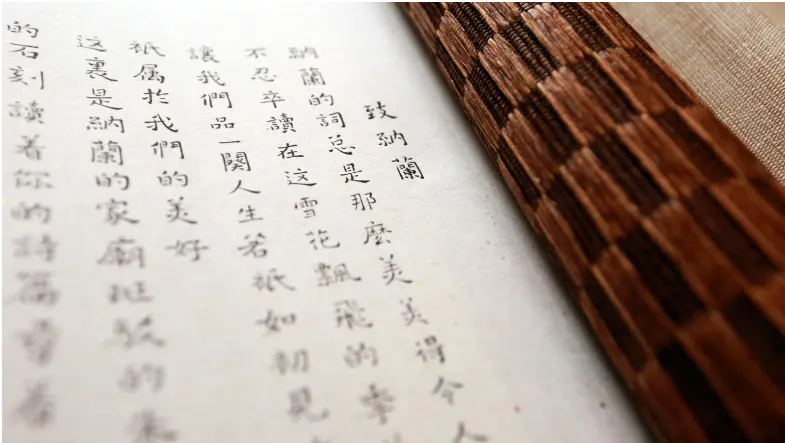 致納蘭
納蘭的詞总是那麼美美得令人
不忍卒讀在这雪花飄飛的季
讓我們品一闋人生若祇如初見
祇属於我們的美好
这裏是納蘭的家廟斑駁的
的石刻讀着你的詩篇